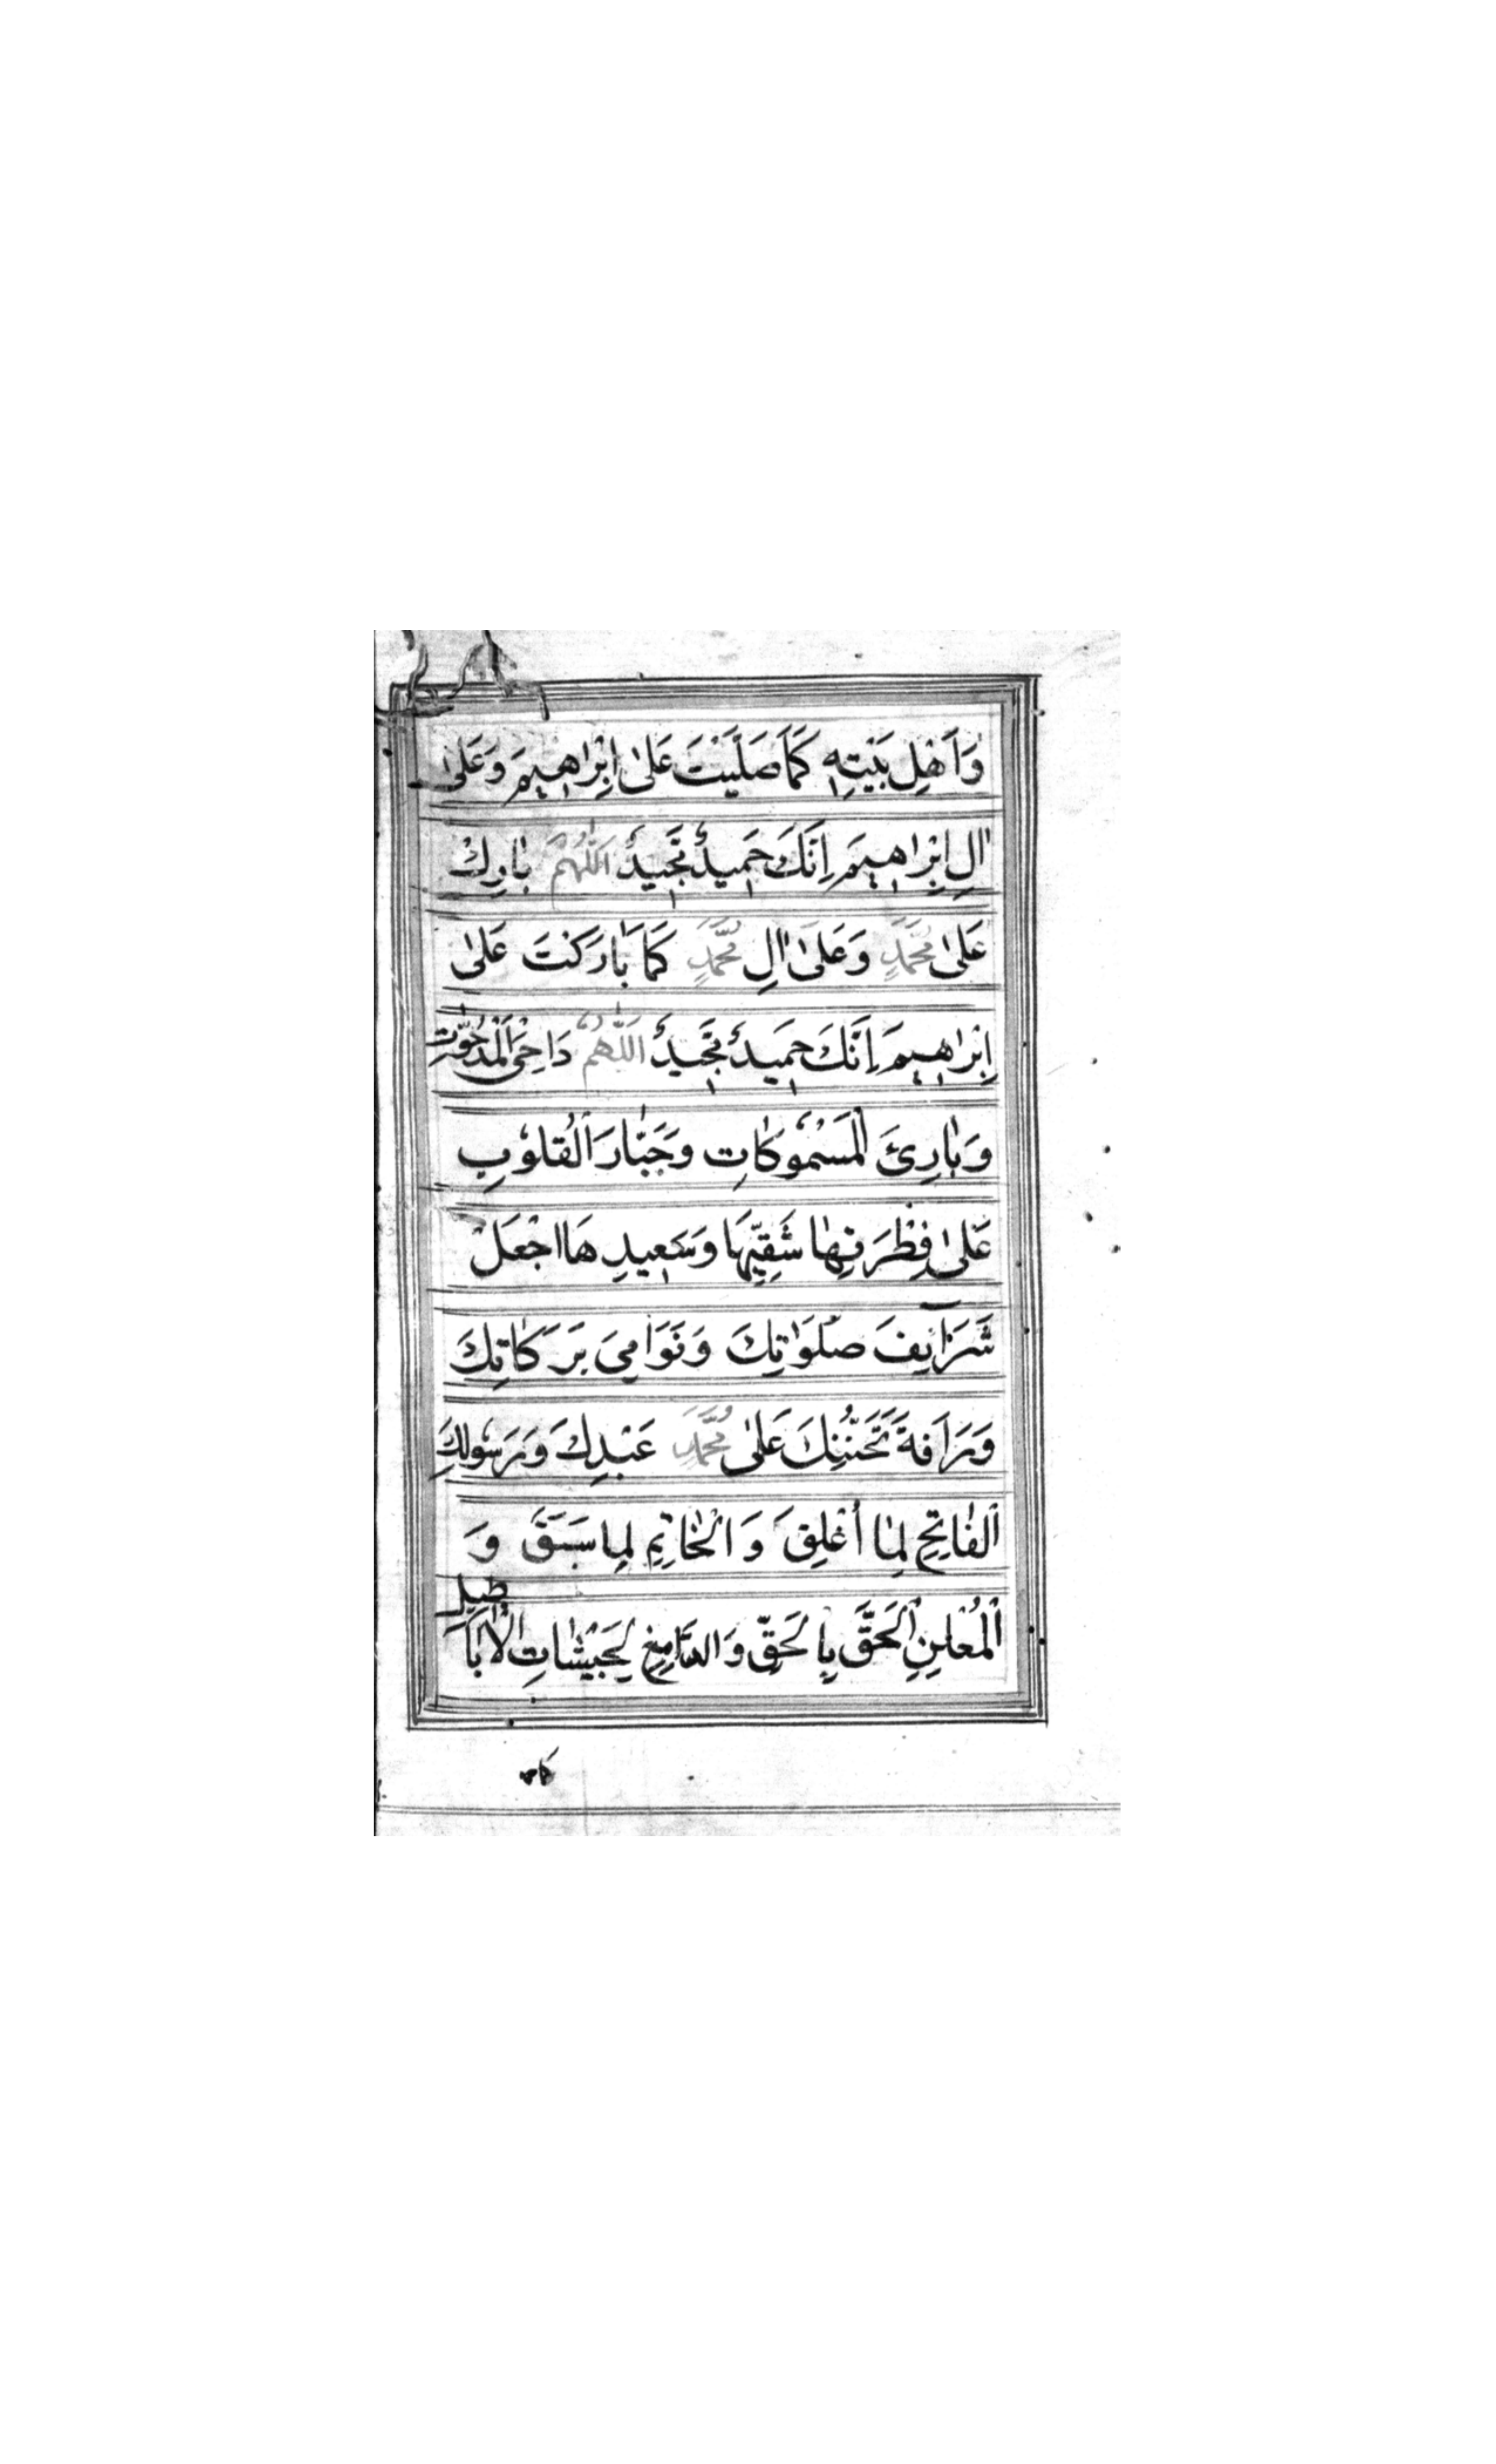 وَاَهْلِ بَيْتِهٖ كَمَا صَلَّيْتَ عَلٰى اِبْرٰاهٖيمَ وَعَلٰى
اٰلِ اِبْرٰاهٖيمَ اِنَّكَ حَمٖيدٌ مَّجٖيدٌ اَللّٰهُمَّ بٰارِكْ
عَلٰى مُحَمَّدٍ وَعَلٰى اٰلِ مُحَمَّدٍ كَمَا بَارَكْتَ عَلٰى
اِبْرٰاهٖيمَ اِنَّكَ حَمٖيدٌ مَّجٖيدٌ اَللّٰهُمَّ دَاحِىَ الْمَدْحُوّٰتِ
وَبٰارِئَ الْمَسْمُوكٰاتِ وَجَبّٰارَ الْقُلُوبِ
عَلٰى فِطْرَتِهٰا شَقِيِّهَا وَسَعٖيدِهَا اجْعَلْ
شَرَآيِفَ صَلَوٰاتِكَ وَنَوَامِىَ بَرَكَاتِكَ
وَرَاَفَةَ تَحَنُّنِكَ عَلٰى مُحَمَّدٍ عَبْدِكَ وَرَسُولِكَ
اَلْفٰاتِحِ لِمٰا اُغْلِقَ وَالْخٰاتِمِ لِمٰا سَبَقَ وَ
اَلْمُعْلِنِ الْحَقَّ بِالْحَقِّ وَالدَّامِغِ لِجَيْشٰاتِ الْاَبَا
طٖيلِ
كما